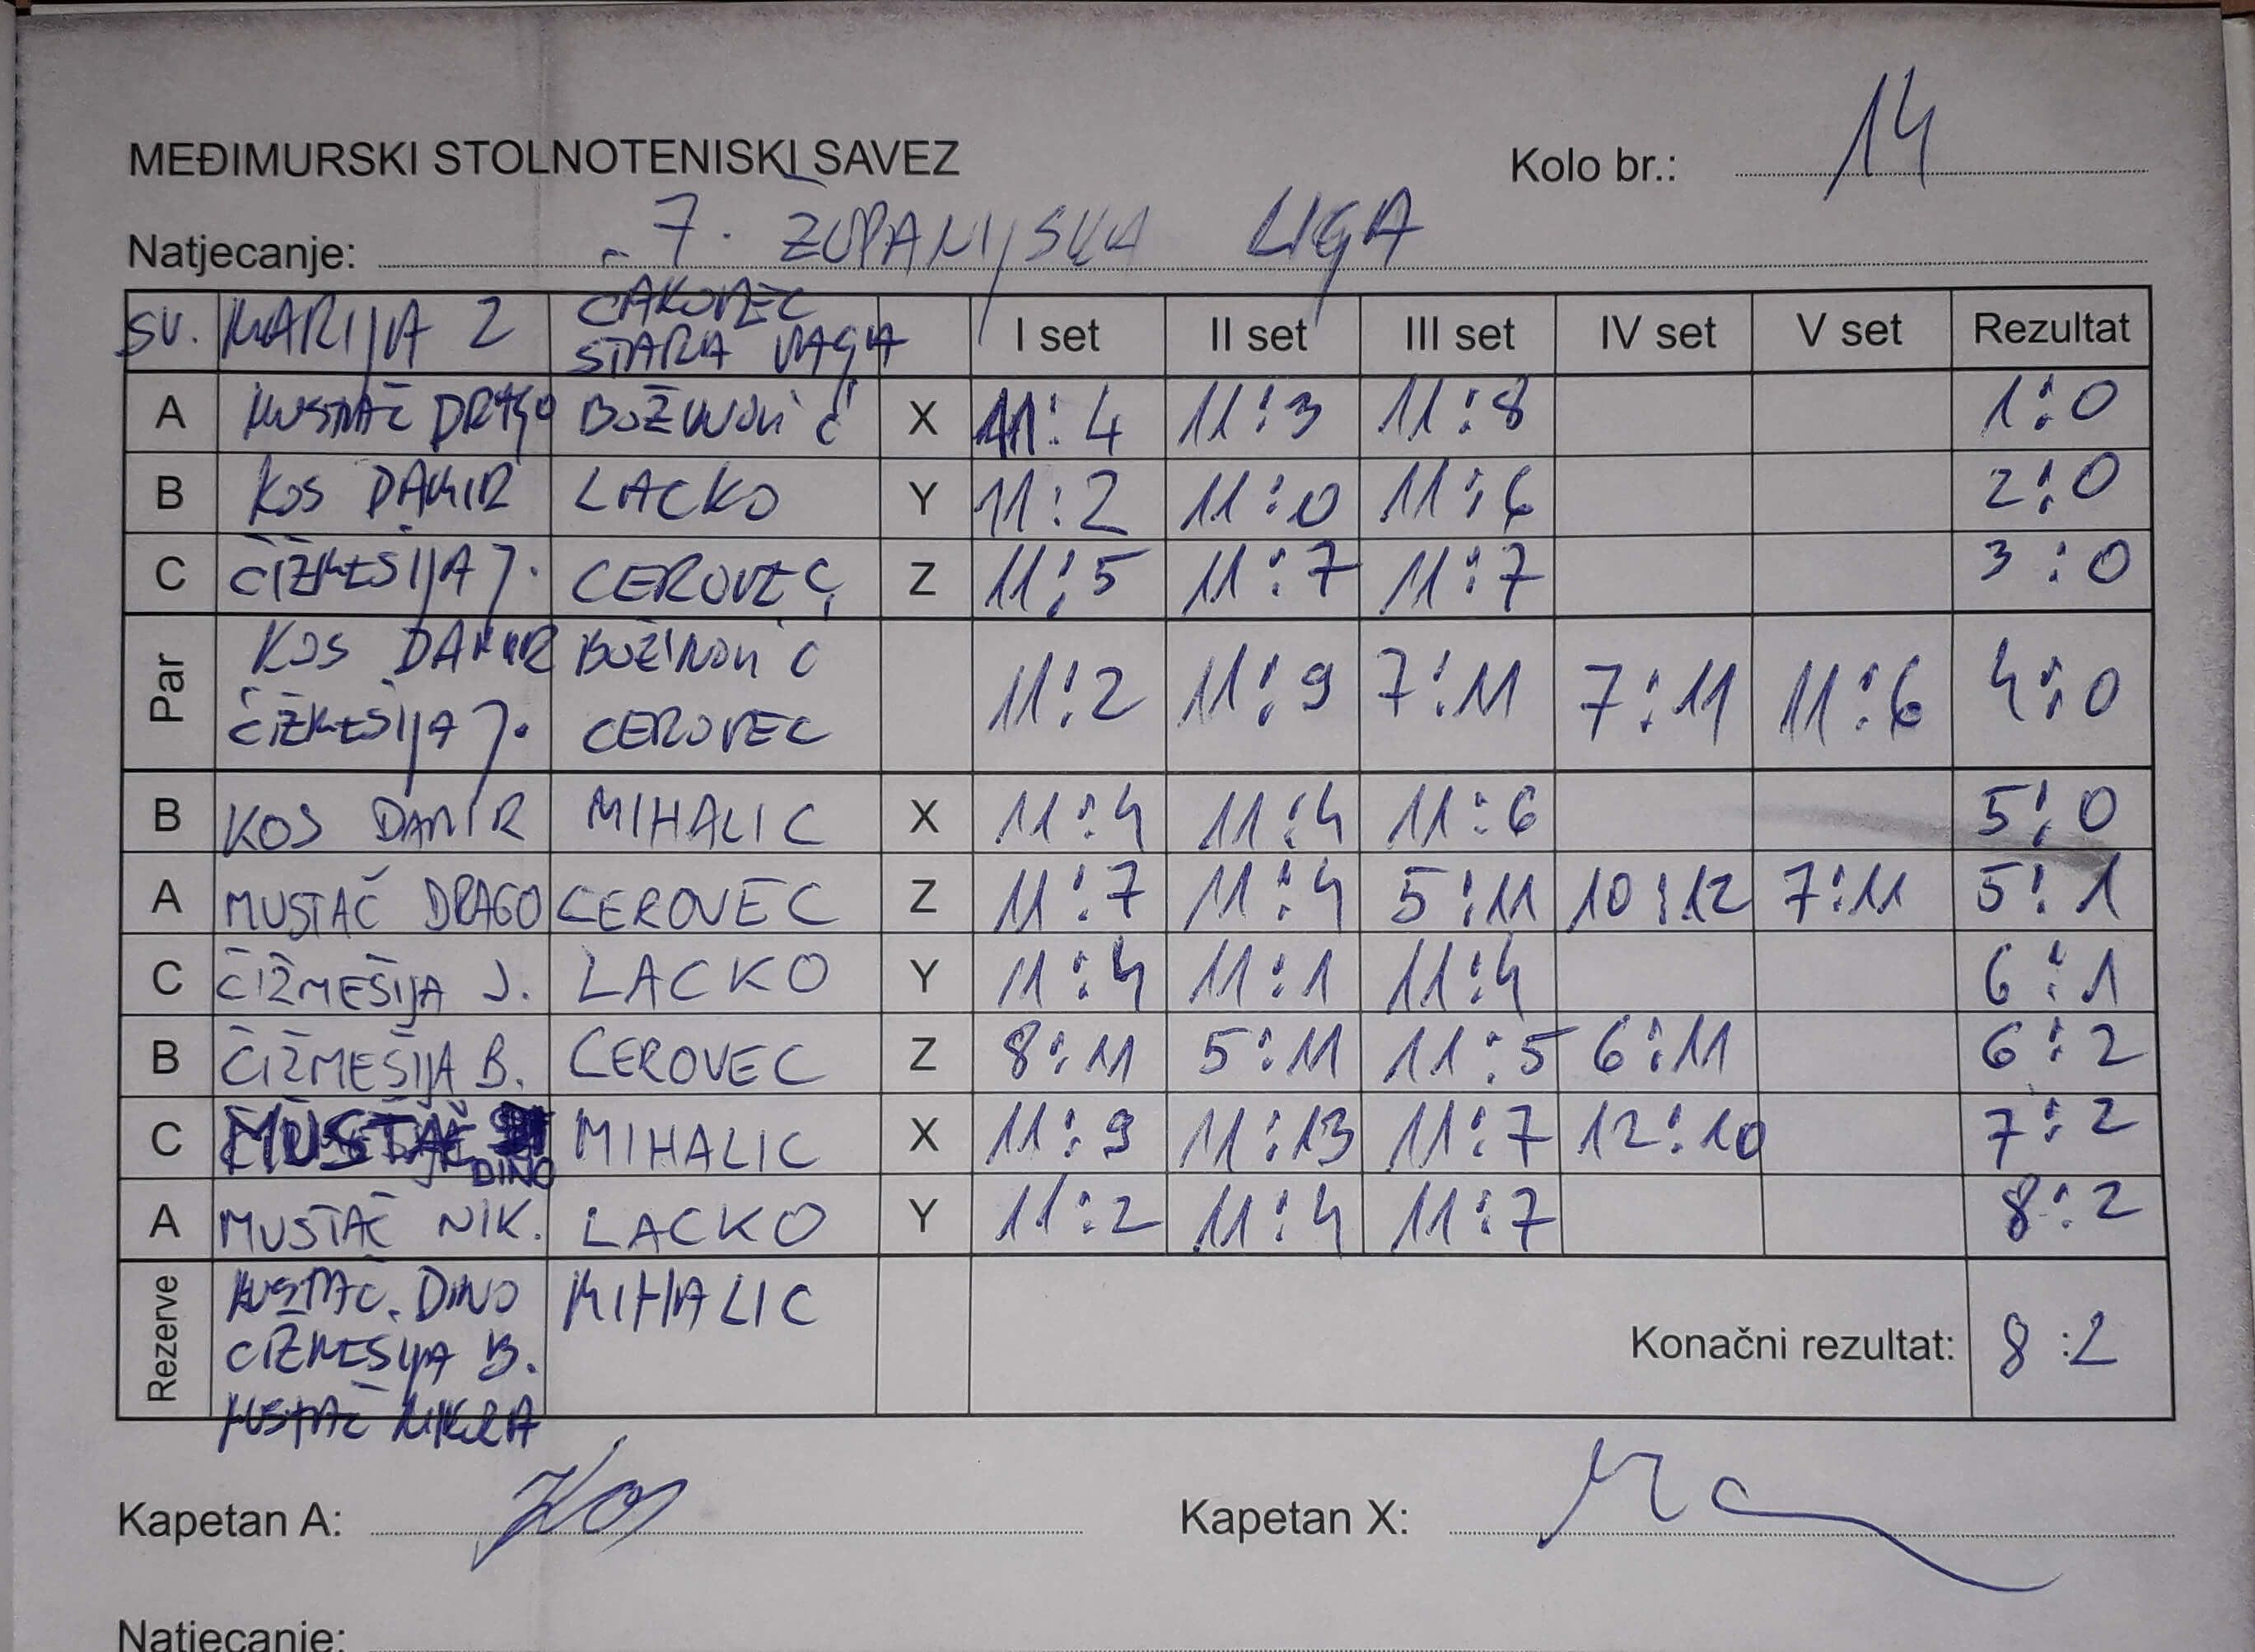 MEĐIMURSKI STOLNOTENISKI SAVEZ Kolo br.: 14
Natjecanje: 7. ŽUPANIJSKA LIGA
SV. MARIJA 2 ČAKOVEC STARA VAGA I set II set III set IV set V set Rezultat
A MUSTAČ DRAGO BOŽINOVIĆ X 11:4 11:3 11:8 1:0
B KOS DAMIR LACKO Y 11:2 11:0 11:6 2:0
C ČIŽMEŠIJA J. CEROVEC Z 11:5 11:7 11:7 3:0
Par KOS DAMIR BOŽINOVIĆ 11:2 11:9 7:11 7:11 11:6 4:0
ČIŽMEŠIJA J. CEROVEC
B KOS DAMIR MIHALIC X 11:4 11:4 11:6 5:0
A MUSTAČ DRAGO CEROVEC Z 11:7 11:4 5:11 10:12 7:11 5:1
C ČIŽMEŠIJA J. LACKO Y 11:4 11:1 11:4 6:1
B ČIŽMEŠIJA B. CEROVEC Z 8:11 5:11 11:5 6:11 6:2
C MUSTAČ DINO MIHALIC X 11:9 11:13 11:7 12:10 7:2
A MUSTAČ NIK. LACKO Y 11:2 11:4 11:7 8:2
Rezerve MUSTAČ. DINO MIHALIC
ČIŽMEŠIJA B. Konačni rezultat: 8:2
MUSTAČ NIKOLA
Kapetan A: Kos Kapetan X:
Natjecanje: